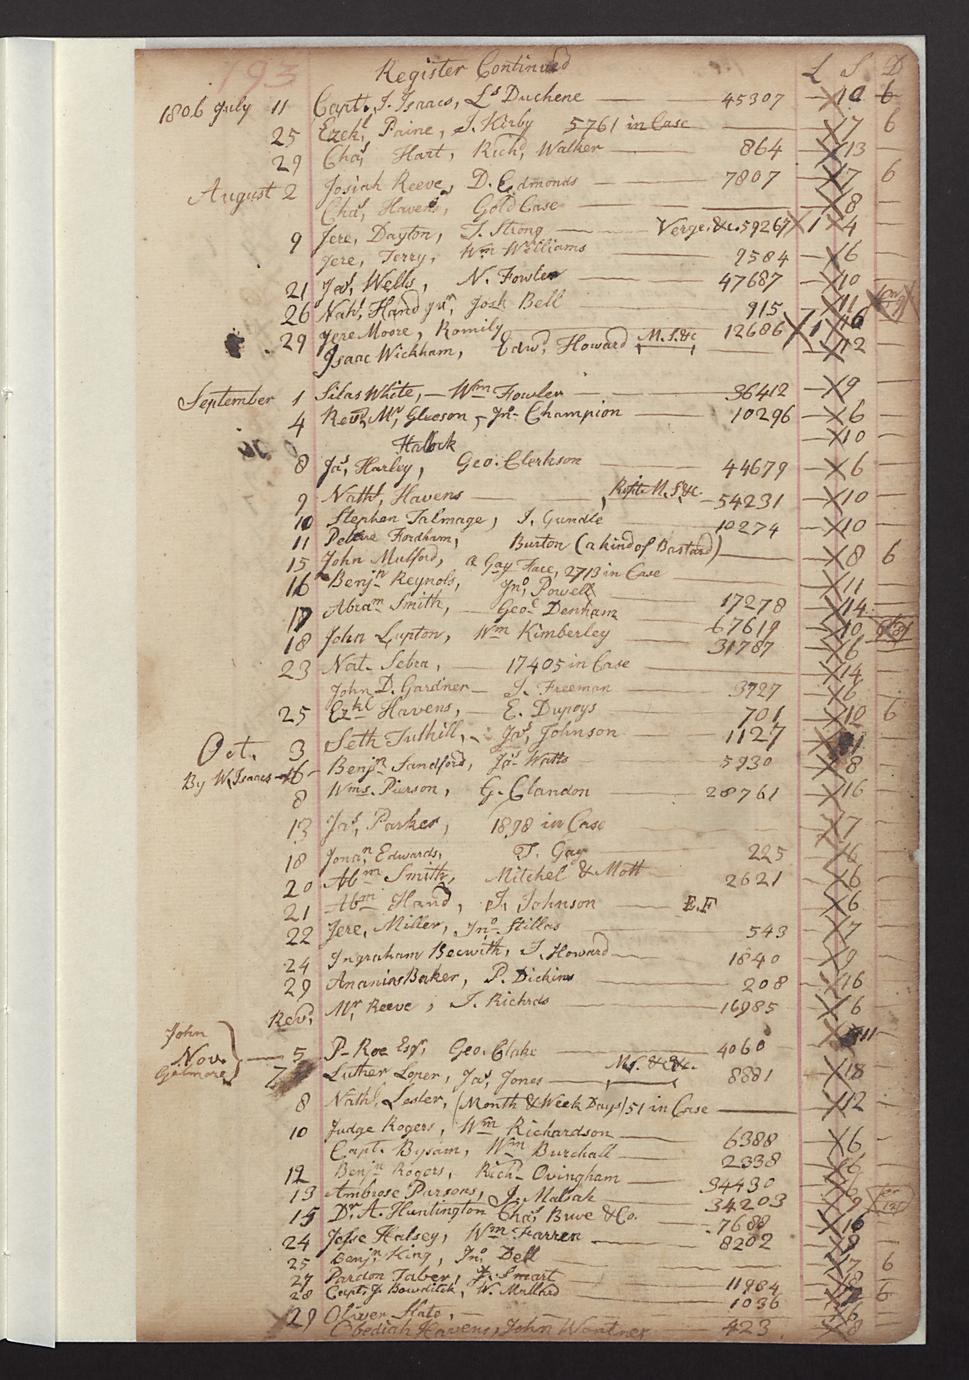 193 Register Continued L S D
1806 July 11 Capt. J. Isaacs, Ls Duchene — 45307 — 10 6
25 Ezekl Paine, J. Kirby 5761 in Case — 7 6
29 Chas Hart, Richd Walker — 864 — 13 —
August 2 Josiah Reeve, D. Edmonds — 7807 — 17 6
Chas Havens, Gold Case — 8 —
9 Jere, Dayton, J. Strong — Verge, &c. 59267 1 4
Jere, Terry, Wm Williams 9584 — 6 —
21 Jas, Wells, N. Fowler — 47687 — 10 —
26 Nahl, Hand Junr, Josh Bell 915 — 11
29 Jere Moore, Romily — 12686 1 16
Isaac Wickham, Edwd, Howard M. S. &c — 12 —
September 1 Silas White, — Wm Fowler — 36412 — 9 —
4 Revd, Mr, Gleeson, Jno Champion — 10296 — 6 —
Hallock — 10 —
8 Jas, Harley, Geo. Clerkson — 44679 — 6 —
9 Nathl, Havens — M. S. &c. 54231 — 10 —
10 Stephen Talmage, J. Gundle — 10274 — 10 —
11 Fordham, Burton (a kind of Bastard) — 8 6
15 John Mulford, a Gay Face, 2713 in Case — 11 —
16 Benjn Reynols, Jno, Powell 17278 — 14
17 Abram Smith, Geoe Denham 67619 — 10
18 John Lupton, Wm Kimberley — 31787 — 6 —
23 Nat. Sebra, — 17405 in Case — 14 —
John D. Gardner — J. Freeman — 3727 — 6 —
25 Ezkl Havens, — E. Dupoys — 701 — 10 6
Oct. 3 Seth Tuthill, — Jas, Johnson — 1127 —
By W. Isaacs — 6 — Benjn Sandford, Jas Watts — 5930 — 8 —
8 Wms. Pierson, G. Clandon — 28761 — 16 —
13 Jas, Parker, 1898 in Case — 7 —
18 Jonan, Edwards, T. Gay 225 — 6 —
20 Abm Smith, Mitchel & Mott 2621 — 6 —
21 Abm Hand, J. Johnson — E.F — 6 —
22 Jere, Miller, Jno. Stillas — 543 — 7 —
24 Ingraham Becwith, J. Howard — 1840 — 9 —
29 Ananias Baker, P. Dickins — 208 — 16 —
Revd, Mr, Reeve, J. Richrds — 16985 — 6 —
John
Nov. } — 5 P. Roe Esqr, Geo. Clake — 4060 — 11 —
Gelmore 7 Luther Loper, Jas, Jones — M. S. &c. 8881 — 18 —
8 Nathl, Lester, (Month & Week Days) 51 in Case — 12 —
10 Judge Rogers, Wm Richardson — 6388 — 6 —
Capt. Bysam, Wm Burchall — 2338 — 6 —
12 Benjn Rogers, Richd Ovingham — 34430 —
13 Ambrose Parsons, J. — 34203 — 9
15 Dr, A. Huntington Chas, Buve & Co. — 7688 — 16
24 Jesse Halsey, Wm Farren — 8202 — 9 —
25 Benjn King, Jno, Dell — 17 6
27 Pardon Taber, J. Smart — 11984 —
28 Capt. J. Bowditch, W. Mallard — 1036 — 6
29 Oliver Slate, —
Obediah Havens, John Wontner — 423 — 8 —